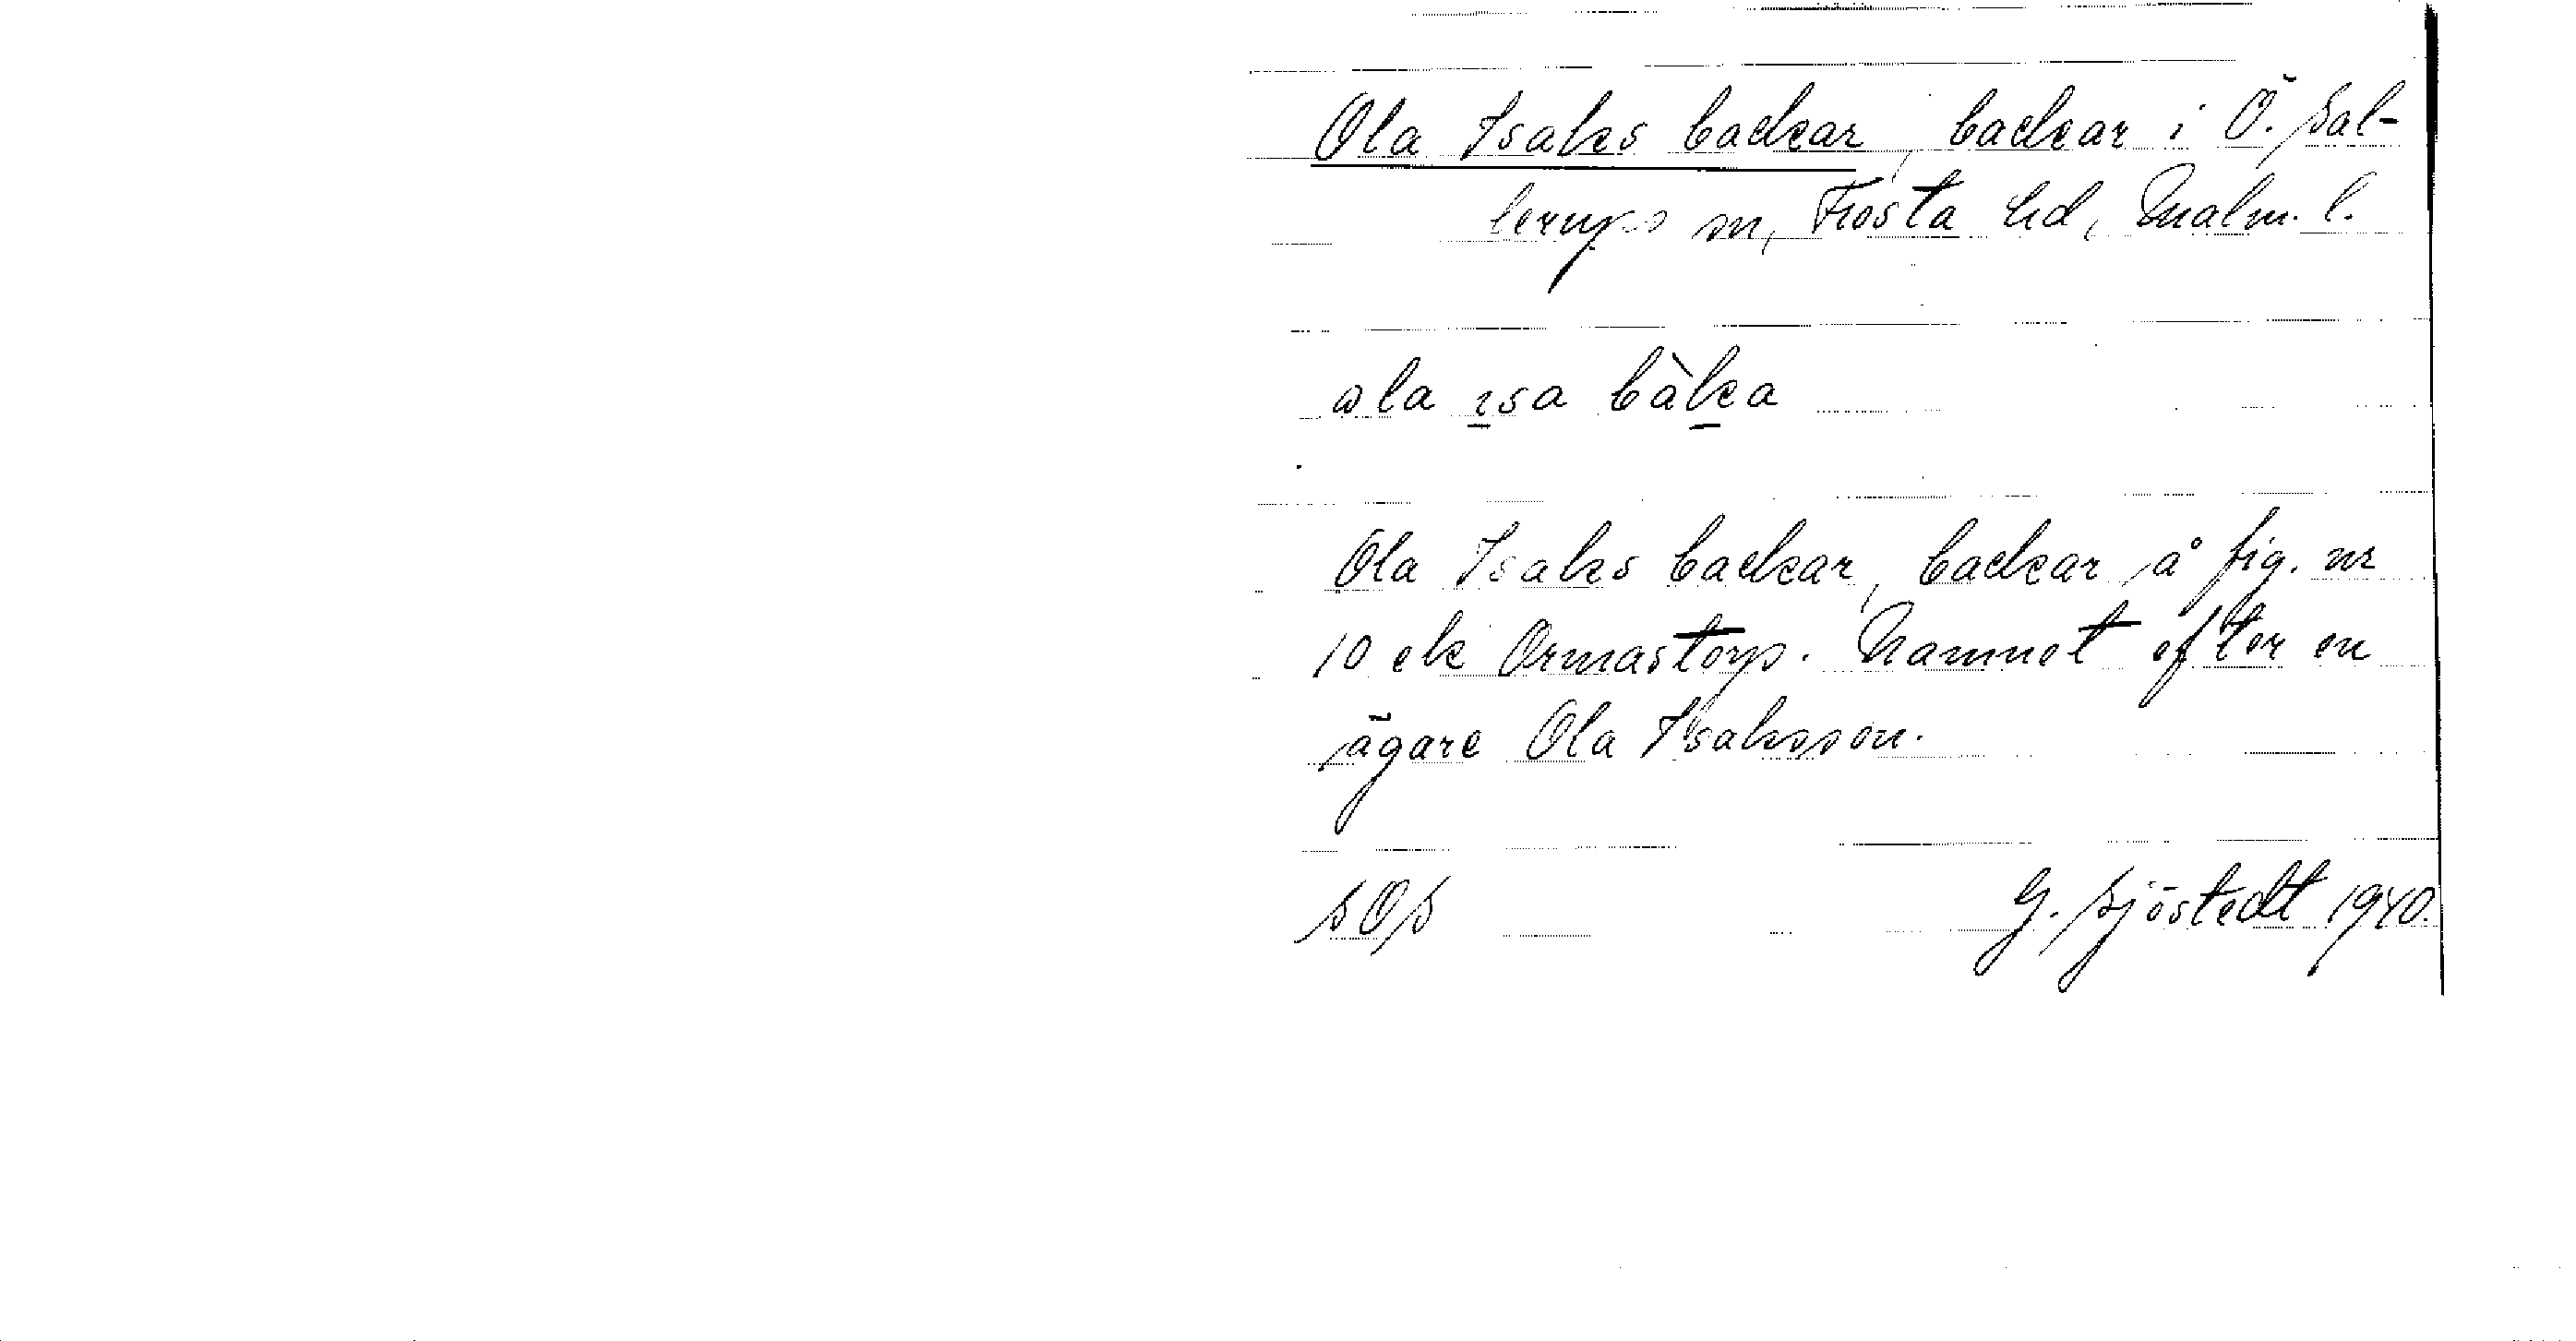 Ola Isaks backar, backar i Ö. Sal-
lerups sn, Frosta hd, Malm. l.
ola isa bàka
Ola Isaks backar, backar å fig. nr
10 ek Ormastorp. Namnet efter en
ägare Ola Isaksson.
SOS G. Sjöstedt 1940.